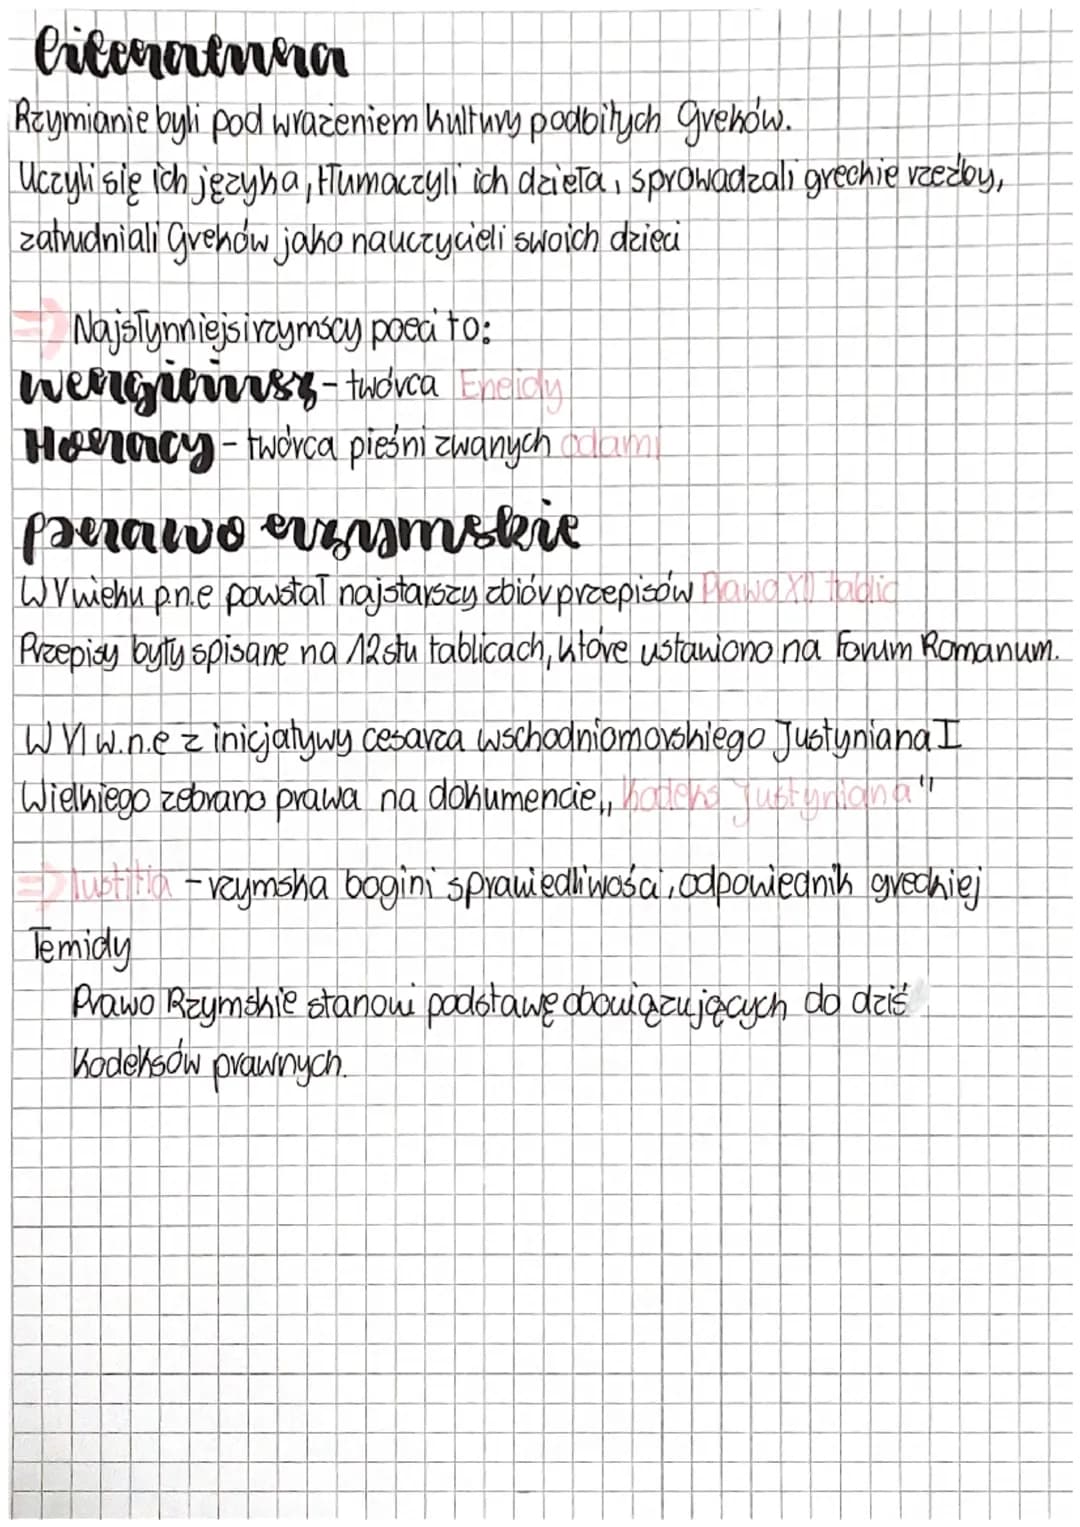 literatura
Rzymianie byli pod wrażeniem kultury podbitych Greków.
Uczyli się ich języka, tłumaczyli ich dzieła, sprowadzali greckie rzeźby,
zatrudniali Greków jako nauczycieli swoich dzieci
=> Najsłynniejsi rzymscy poeci to:
wergiliusz - twórca Eneidy
Horacy - twórca pieśni zwanych odami
prawo rzymskie
W V wieku p.n.e powstał najstarszy zbiór przepisów Prawo XII tablic
Przepisy były spisane na 12stu tablicach, które ustawiono na Forum Romanum.
W VI w.n.e z inicjatywy cesarza wschodniomorskiego Justyniana I
Wielkiego zebrano prawa na dokumencie „Kodeks Justyniana"
=> Iustitia - rzymska bogini sprawiedliwości, odpowiednik greckiej
Temidy
Prawo Rzymskie stanowi podstawę obowiązujących do dziś
kodeksów prawnych.